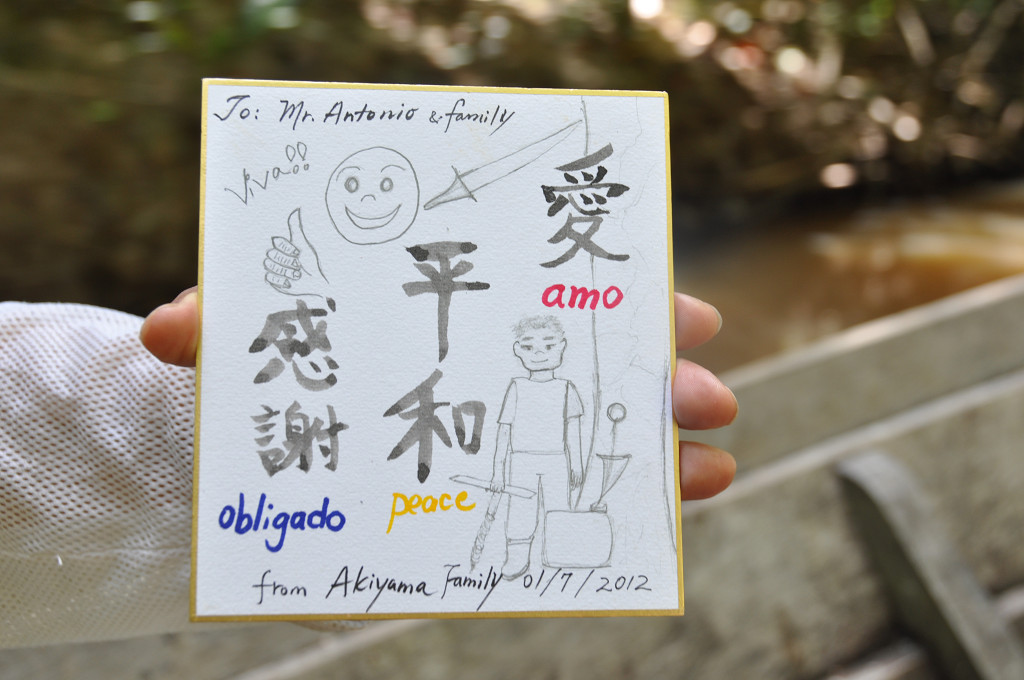 To: Mr. Antonio & family
Viva!!
愛
amo
平和
peace
感謝
obligado
from Akiyama Family 01/7/2012